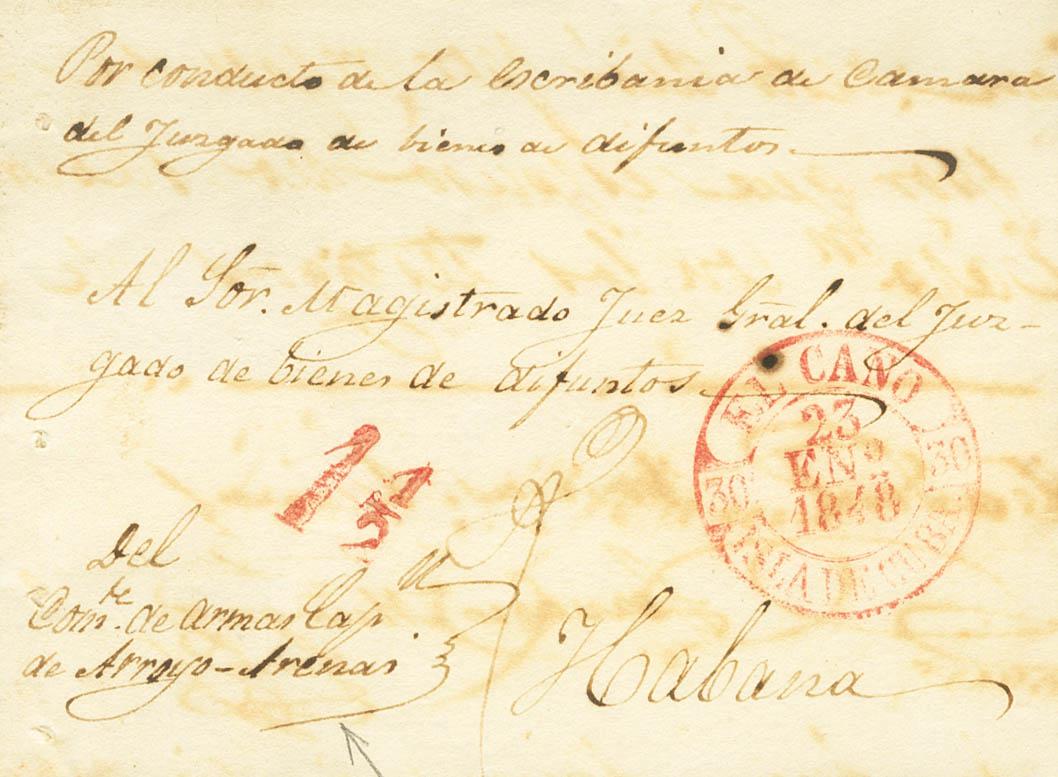 Por conducto de la Escribania de Camara
del Juzgado de bienes de difuntos.
Al Sõr. Magistrado Juez Gral. del Juz-
gado de bienes de difuntos.
EL CANO
23
ENº
1848
30
30
ISLA DE CUBA
1 1/2
Del
Comte. de Armas Cap
de Arroyo-Arenas
Habana